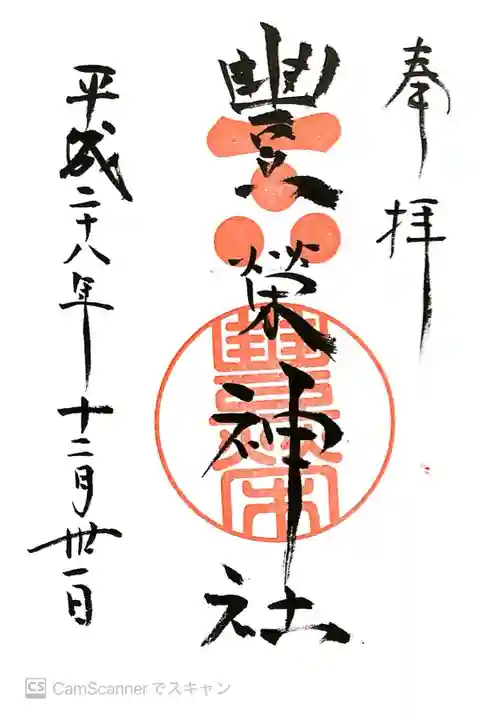 奉拝
豐榮神社
平成二十八年十二月卅一日
CS CamScannerでスキャン